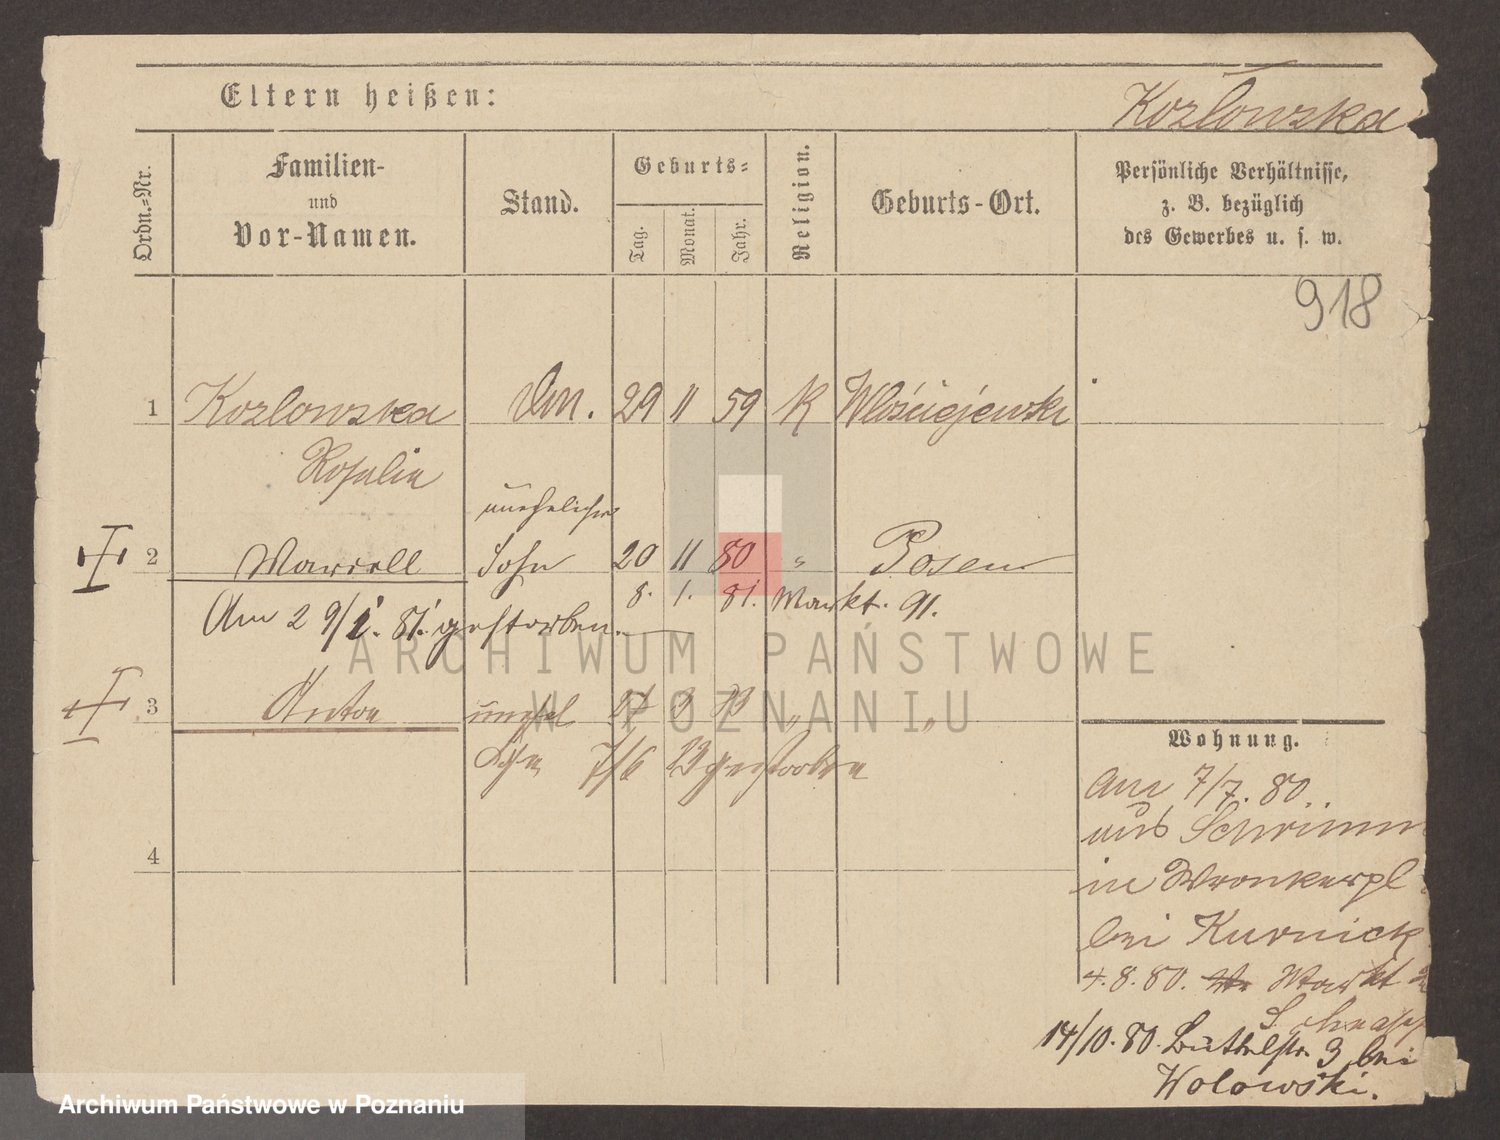 Eltern heißen:
Kozlowska
Ordn.-Nr.
Familien-
und
Vor-Namen.
Stand.
Geburts-
Tag.
Monat.
Jahr.
Religion.
Geburts-Ort.
Persönliche Verhältnisse,
z. B. bezüglich
des Gewerbes u. s. w.
918
1 Kozlowska 29 11 59 K Włościejewki
Rosalie
unehelicher
2 Sohn 20 11 80 " Posen
8. 1. 81. Markt. 91.
Am 29/1. 81. gestorben.
3 Anton unehel 3 " "
7/6 gestorben
4
Wohnung.
am 7/7. 80.
aus Schrimm
in Wronkerpl
bei Kurnick
4.8.80. Markt
14/10. 80. Büttelstr. 3 bei
Wolowski.
ARCHIWUM PAŃSTWOWE
W POZNANIU
Archiwum Państwowe w Poznaniu